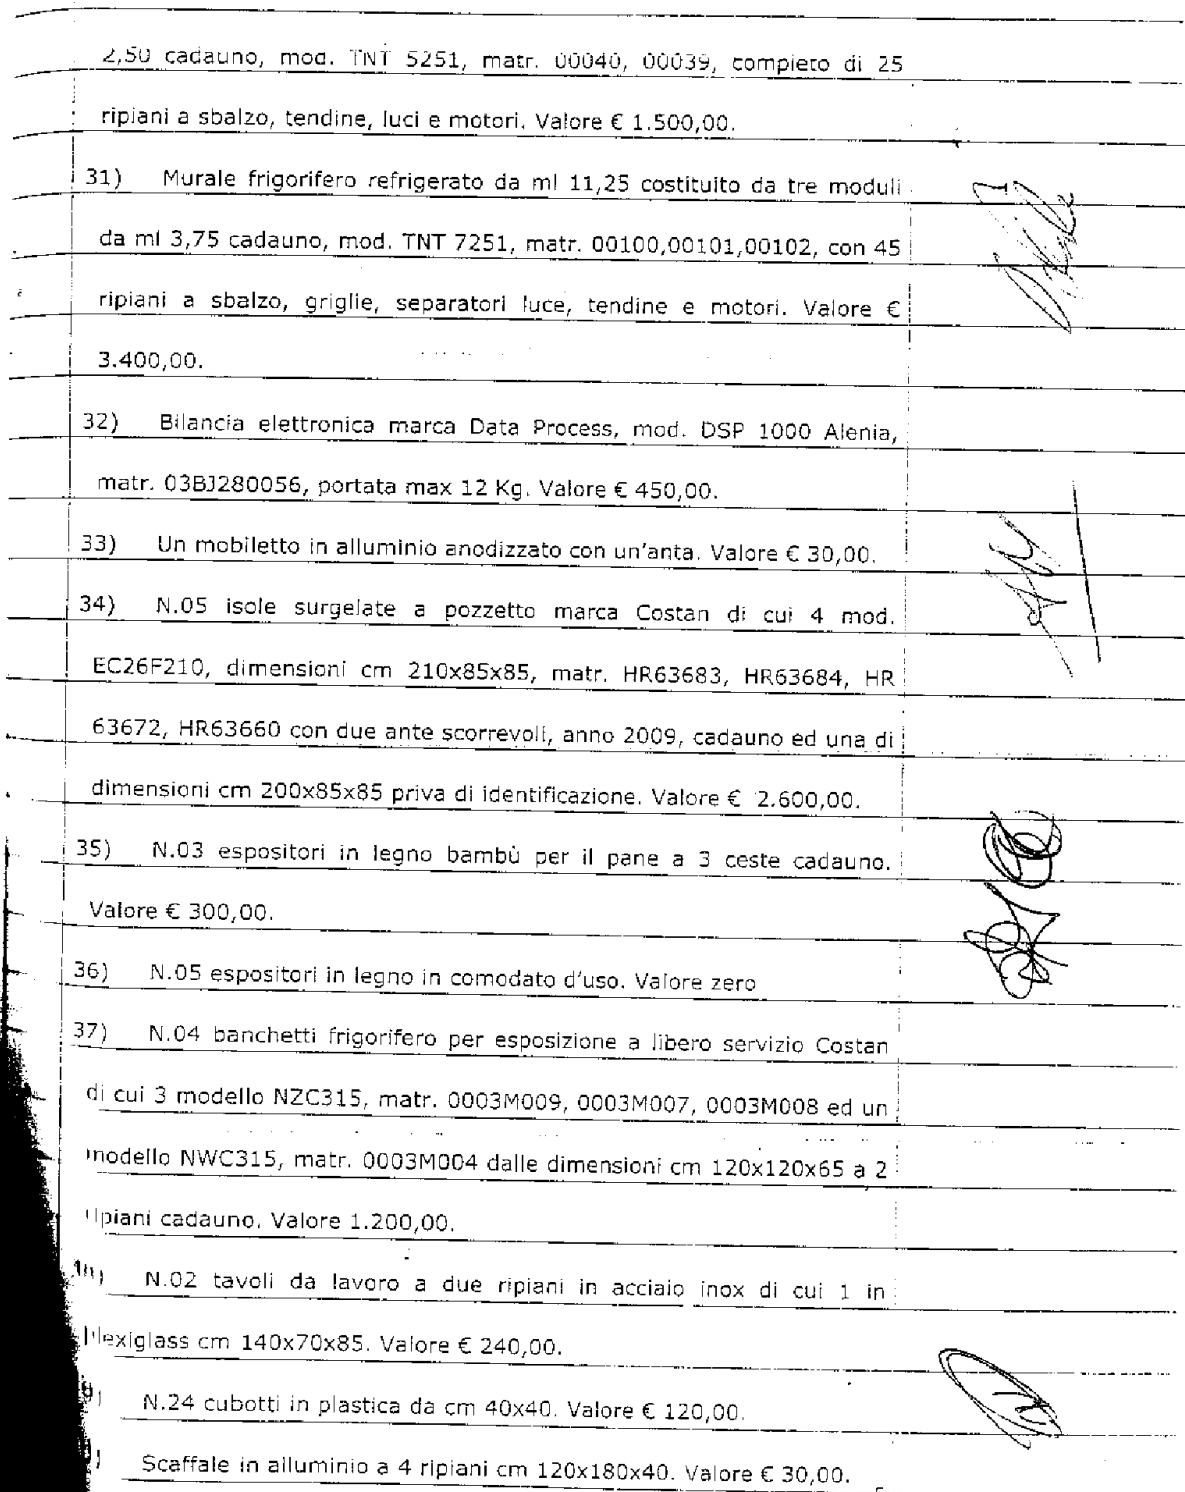 2,50 cadauno, mod. TNT 5251, matr. 00040, 00039, completo di 25
ripiani a sbalzo, tendine, luci e motori. Valore € 1.500,00.
31) Murale frigorifero refrigerato da ml 11,25 costituito da tre moduli
da ml 3,75 cadauno, mod. TNT 7251, matr. 00100,00101,00102, con 45
ripiani a sbalzo, griglie, separatori luce, tendine e motori. Valore €
3.400,00.
32) Bilancia elettronica marca Data Process, mod. DSP 1000 Alenia,
matr. 03BJ280056, portata max 12 Kg. Valore € 450,00.
33) Un mobiletto in alluminio anodizzato con un'anta. Valore € 30,00.
34) N.05 isole surgelate a pozzetto marca Costan di cui 4 mod.
EC26F210, dimensioni cm 210x85x85, matr. HR63683, HR63684, HR
63672, HR63660 con due ante scorrevoli, anno 2009, cadauno ed una di
dimensioni cm 200x85x85 priva di identificazione. Valore € 2.600,00.
35) N.03 espositori in legno bambù per il pane a 3 ceste cadauno.
Valore € 300,00.
36) N.05 espositori in legno in comodato d'uso. Valore zero
37) N.04 banchetti frigorifero per esposizione a libero servizio Costan
di cui 3 modello NZC315, matr. 0003M009, 0003M007, 0003M008 ed un
modello NWC315, matr. 0003M004 dalle dimensioni cm 120x120x65 a 2
ripiani cadauno. Valore 1.200,00.
N.02 tavoli da lavoro a due ripiani in acciaio inox di cui 1 in
plexiglass cm 140x70x85. Valore € 240,00.
N.24 cubotti in plastica da cm 40x40. Valore € 120,00.
Scaffale in alluminio a 4 ripiani cm 120x180x40. Valore € 30,00.